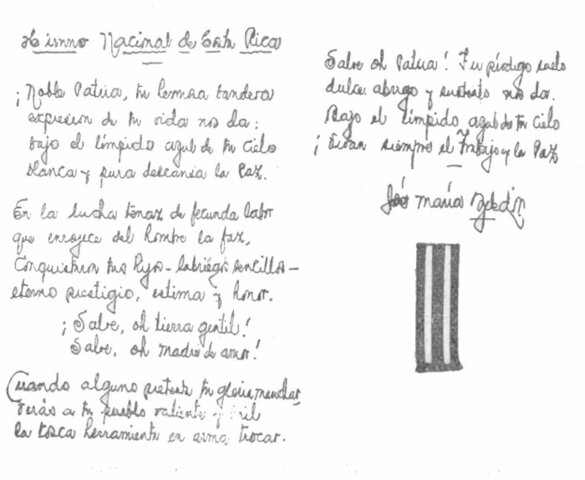 Himno Nacional de Costa Rica
¡Noble Patria, tu hermosa bandera
expresión de tu vida nos da:
bajo el límpido azul de tu cielo
blanca y pura descansa la Paz.
En la lucha tenaz de fecunda labor
que enrojece del hombre la faz,
conquistaron tus hijos - labriegos sencillos -
eterno prestigio, estima y honor.
¡Salve, oh tierra gentil!
Salve, oh madre de amor!
Cuando alguno pretenda tu gloria manchar
verás a tu pueblo valiente y viril
la tosca herramienta en arma trocar.
Salve oh Patria! Tu pródigo suelo
dulce abrigo y sustento nos da.
Bajo el límpido azul de tu cielo
¡Vivan siempre el Trabajo y la Paz
José María Zeledón